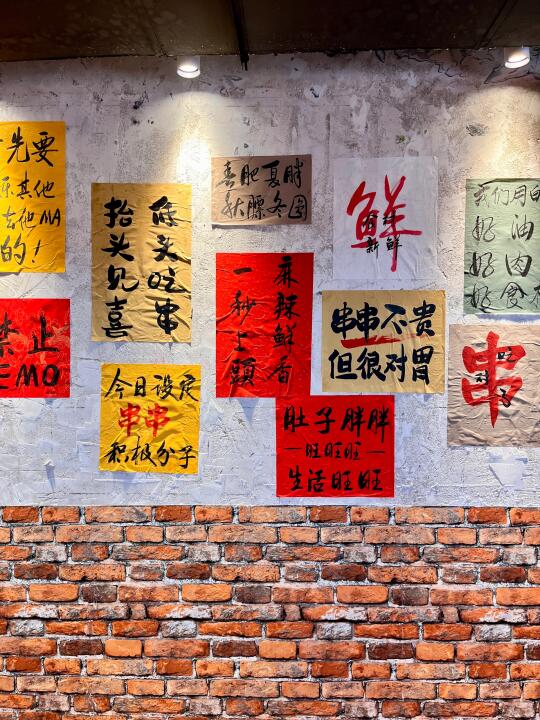 先要
乐其他
去他MA
的！
禁止
EMO
低头吃串
抬头见喜
今日设定
串串
积极分子
春肥夏胖
秋膘冬圆
麻辣鲜香
一秒上頭
鲜
新鲜
串串不贵
但很对胃
肚子胖胖
—旺旺旺—
生活旺旺
我们用的
好油
好肉
好食材
串
吃
对